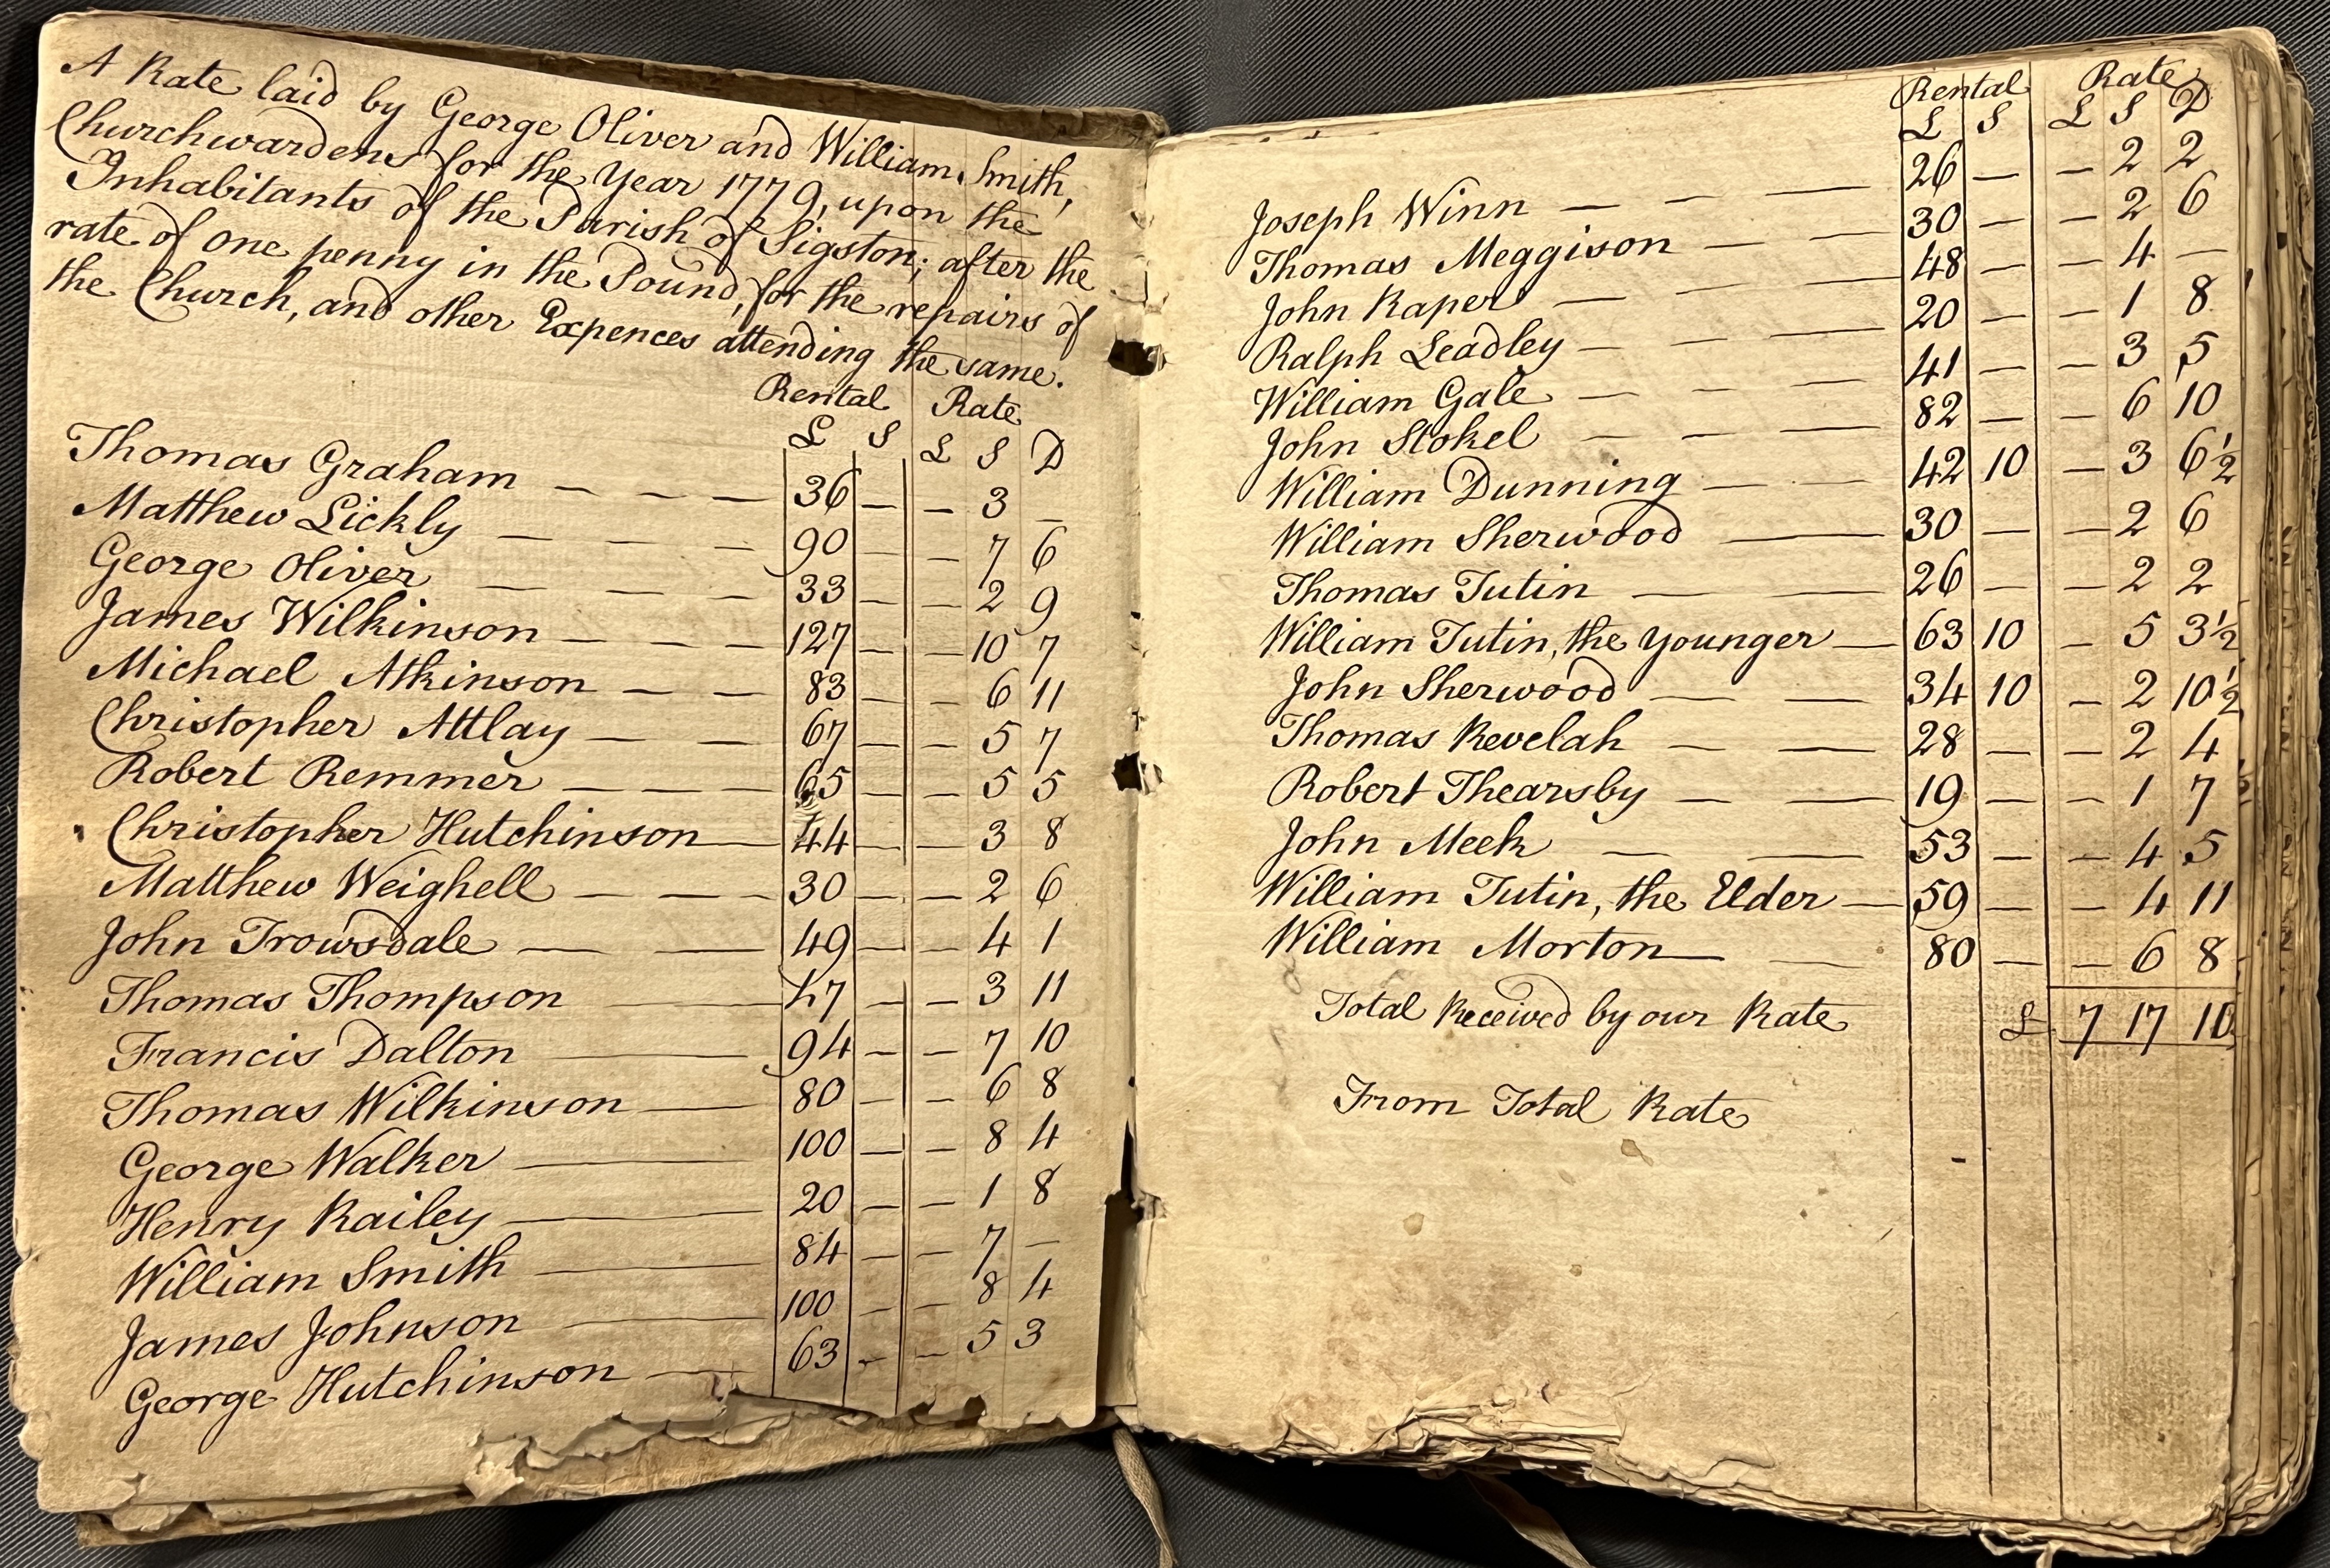 A Rate laid by George Oliver and William Smith,
Churchwardens for the Year 1779, upon the
Inhabitants of the Parish of Sigston; after the
rate of one penny in the Pound, for the repairs of
the Church, and other Expences attending the same.
Rental Rate
£ S £ S D
Thomas Graham — — — — 36 — — 3 —
Matthew Lickly — — — — 90 — — 7 6
George Oliver — — — — 33 — — 2 9
James Wilkinson — — — 127 — — 10 7
Michael Atkinson — — — 83 — — 6 11
Christopher Attlay — — 67 — — 5 7
Robert Remmer — — — — 65 — — 5 5
Christopher Hutchinson — 44 — — 3 8
Matthew Weighell — — — 30 — — 2 6
John Trowsdale — — — 49 — — 4 1
Thomas Thompson — — 47 — — 3 11
Francis Dalton — 94 — — 7 10
Thomas Wilkinson — 80 — — 6 8
George Walker — 100 — — 8 4
Henry Railey — 20 — — 1 8
William Smith — 84 — — 7 —
James Johnson — 100 — — 8 4
George Hutchinson — 63 — — 5 3
Rental Rate
£ S £ S D
Joseph Winn — — — 26 — — 2 2
Thomas Meggison — — 30 — — 2 6
John Raper — — — 48 — — 4 —
Ralph Leadley — — — 20 — — 1 8
William Gale — — — 41 — — 3 5
John Stokel — — — 82 — — 6 10
William Dunning — — 42 10 — 3 6½
William Sherwood — 30 — — 2 6
Thomas Tutin — — 26 — — 2 2
William Tutin, the younger — 63 10 — 5 3½
John Sherwood — — 34 10 — 2 10½
Thomas Revelah — — 28 — — 2 4
Robert Thearsby — — 19 — — 1 7
John Meek — — 53 — — 4 5
William Tutin, the Elder — 59 — — 4 11
William Morton — — 80 — — 6 8
Total Received by our Rate £ 7 17 10
From Total Rate